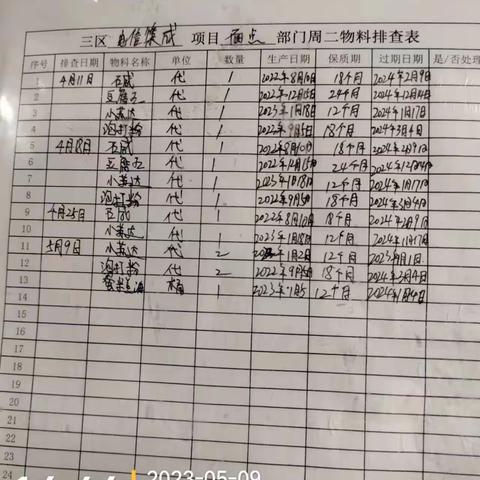 三区 自信集成 项目 面点 部门周二物料排查表
序号 排查日期 物料名称 单位 数量 生产日期 保质期 过期日期 是/否处理
1 4月11日 石咸 代 1 2022年8月10日 18个月 2024年2月9日
2 豆腐王 代 1 2022年12月15日 24个月 2024年12月14日
3 小苏达 代 1 2023年1月18日 12个月 2024年1月17日
4 泡打粉 代 1 2022年9月5日 18个月 2024年3月4日
5 4月8日 石咸 代 1 2022年8月10日 18个月 2024年2月9日
6 豆腐王 代 1 2022年12月15日 24个月 2024年12月14日
7 小苏达 代 1 2023年1月18日 12个月 2024年1月17日
8 泡打粉 代 1 2022年9月5日 18个月 2024年3月4日
9 4月25日 石咸 代 1 2022年8月10日 18个月 2024年2月9日
10 小苏达 代 1 2023年1月18日 12个月 2024年1月17日
11 5月9日 小苏达 代 2 年1月2日 12个月 2023年1月1日
12 泡打粉 代 2 2022年9月5日 18个月 2024年3月4日
13 桶 1 2023年1月5 12个月 2024年1月4日
14
15
16
17
18
19
20
21
22
23
24
2023-05-09